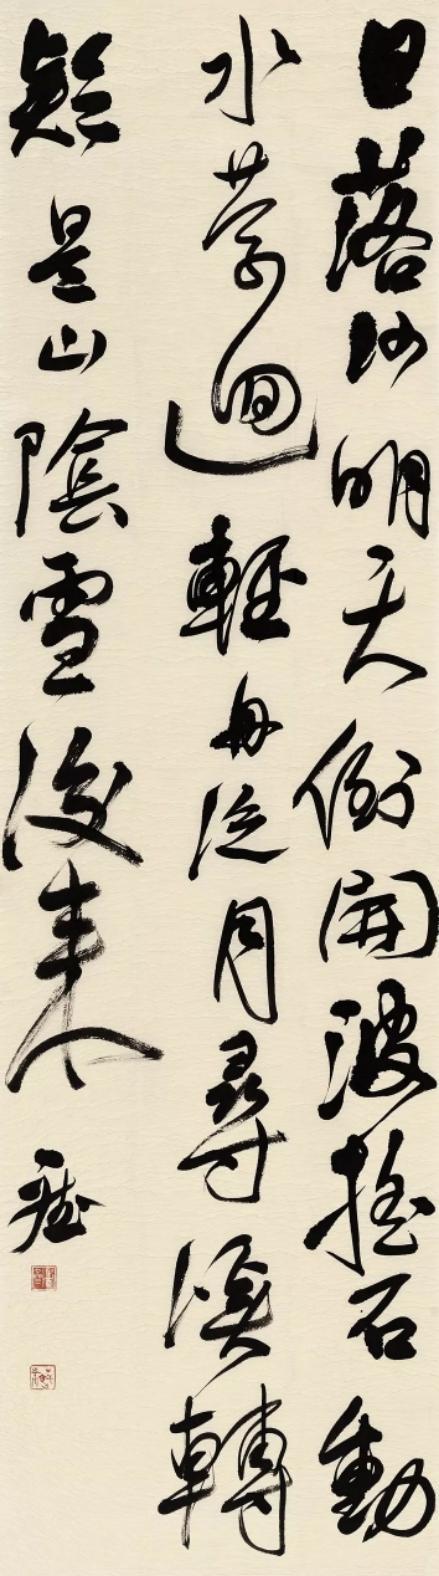 日落沙明天倒開波搖石動
水縈迴輕舟泛月尋溪轉
疑是山陰雪後來